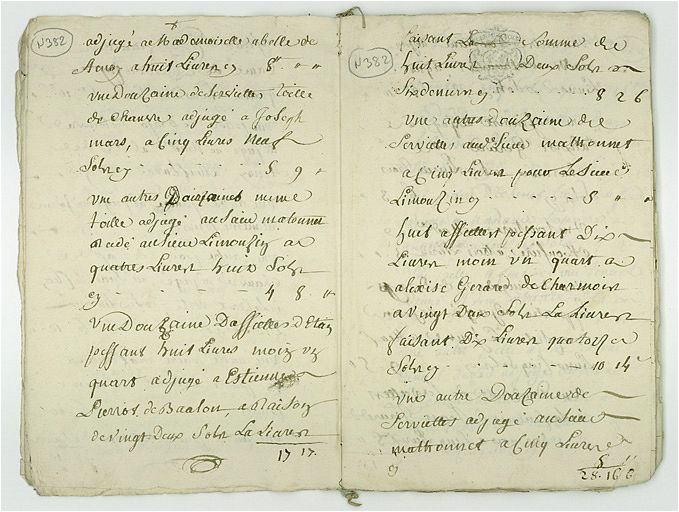 N382
adjugé a Mademoiselle abolle de
a huit Livres cy 8 " "
vne Douzaine de serviettes toille
de chanvre adjugé a Joseph
mars, a Cinq Livres Neuf
Sols cy 5 9 "
vne autres Douzaines meme
toille adjugé au sieur matonnet
et cedé au sieur Limouzin a
quatres Livres huit Sols
cy 4 8 "
Vne Douzaine Dassiettes d'Etain
pessant huit Livres moin vn
quart adjugé a Estienne
Pierrot de Baalon, a Raison
de vingt Deux Sols La Livres
17 17
N382
faisant La Somme de
huit Livres Deux Sols
Six deniers cy 8 2 6
vne autres Douzaine de
Serviettes au Sieur mathonnet
a Cinq Livres pour Le Sieur
Limouzin cy 5 " "
huit assiettes pessant Dix
Livres moin vn quart a
alexise Gerard de Charmois
a vingt Deux Sols La Livres
faisant Dix Livres quatorze
Sols cy 10 14
vne autre Douzaine de
Serviettes adjugé au Sieur
mathonnet a Cinq Livres
cy 5 "
28 . 16 6